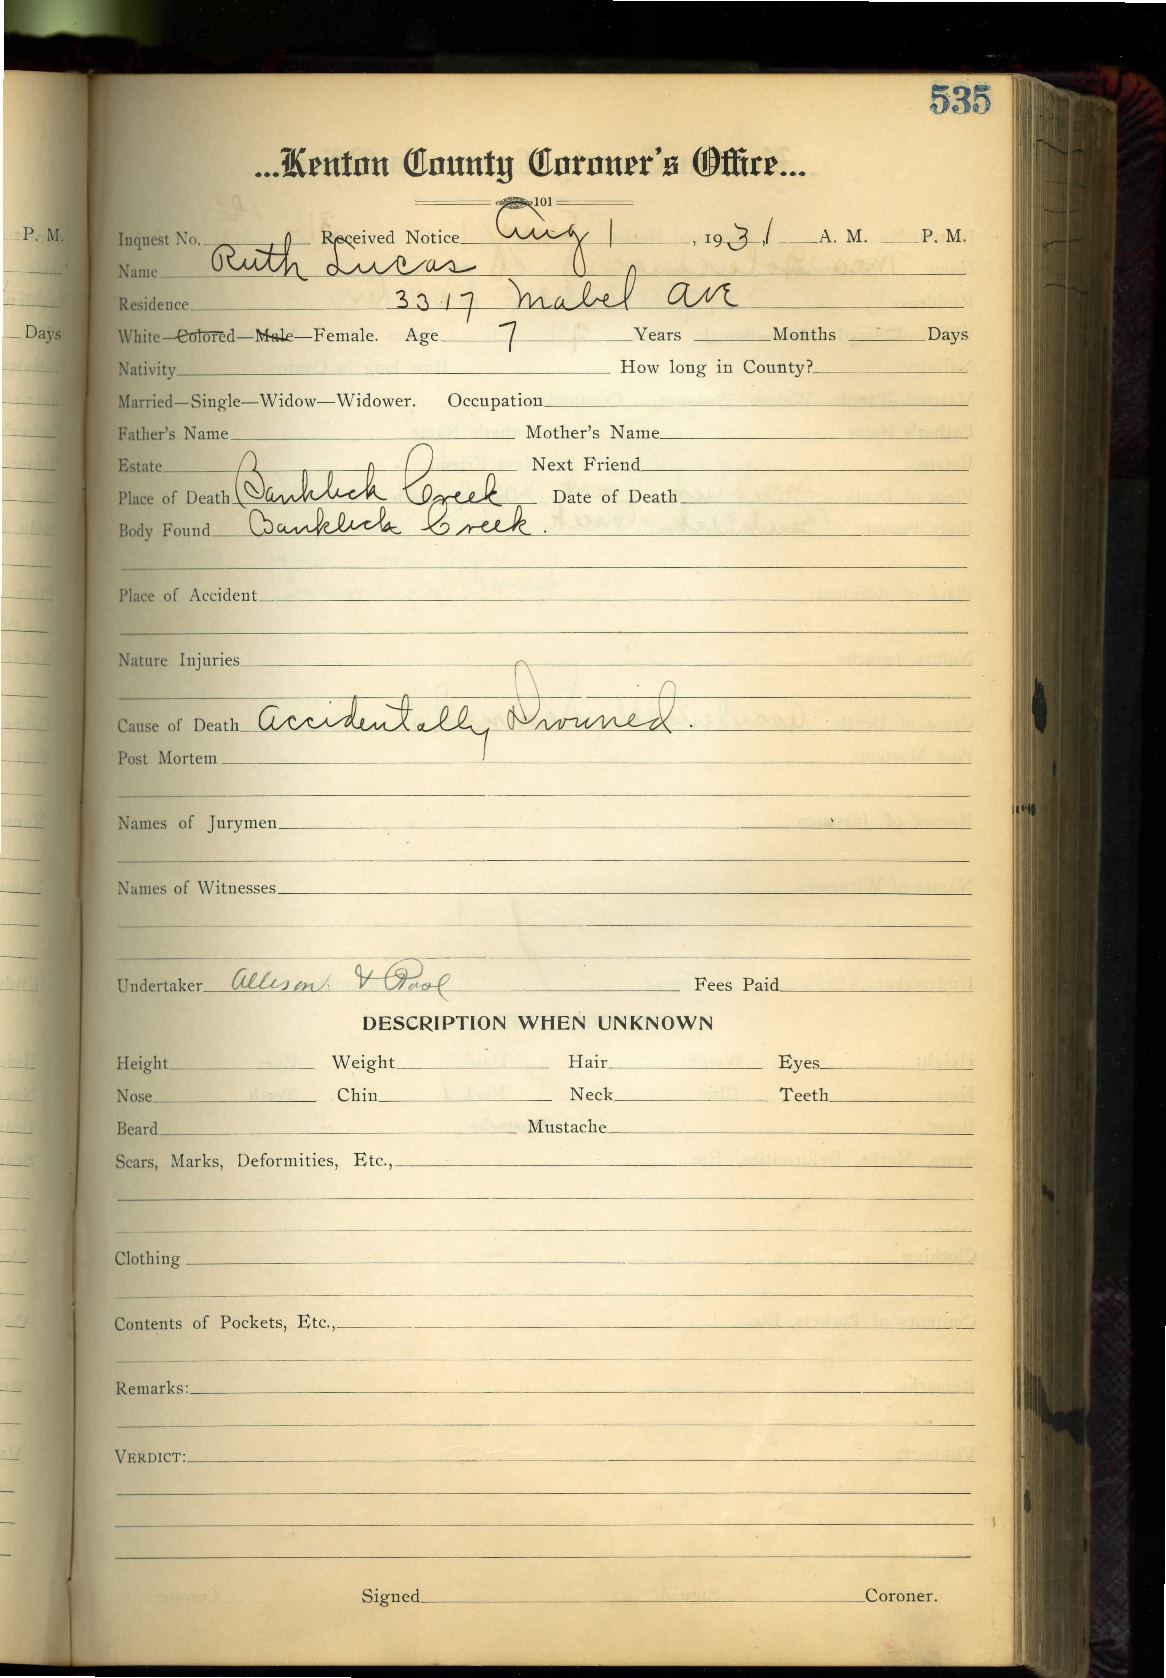 535
...Kenton County Coroner's Office...
101
Inquest No. Received Notice Aug 1, 1931 A. M. P. M.
P. M.
Name Ruth Lucas
Residence 3317 Mabel Ave
Days
White—Colored—Male—Female. Age 7 Years Months Days
Nativity How long in County?
Married—Single—Widow—Widower. Occupation
Father's Name Mother's Name
Estate Next Friend
Place of Death Banklick Creek Date of Death
Body Found Banklick Creek.
Place of Accident
Nature Injuries
Cause of Death Accidentally Drowned.
Post Mortem
Names of Jurymen
Names of Witnesses
Undertaker Allison & Fees Paid
DESCRIPTION WHEN UNKNOWN
Height Weight Hair Eyes
Nose Chin Neck Teeth
Beard Mustache
Scars, Marks, Deformities, Etc.,
Clothing
Contents of Pockets, Etc.,
Remarks:
VERDICT:
Signed Coroner.